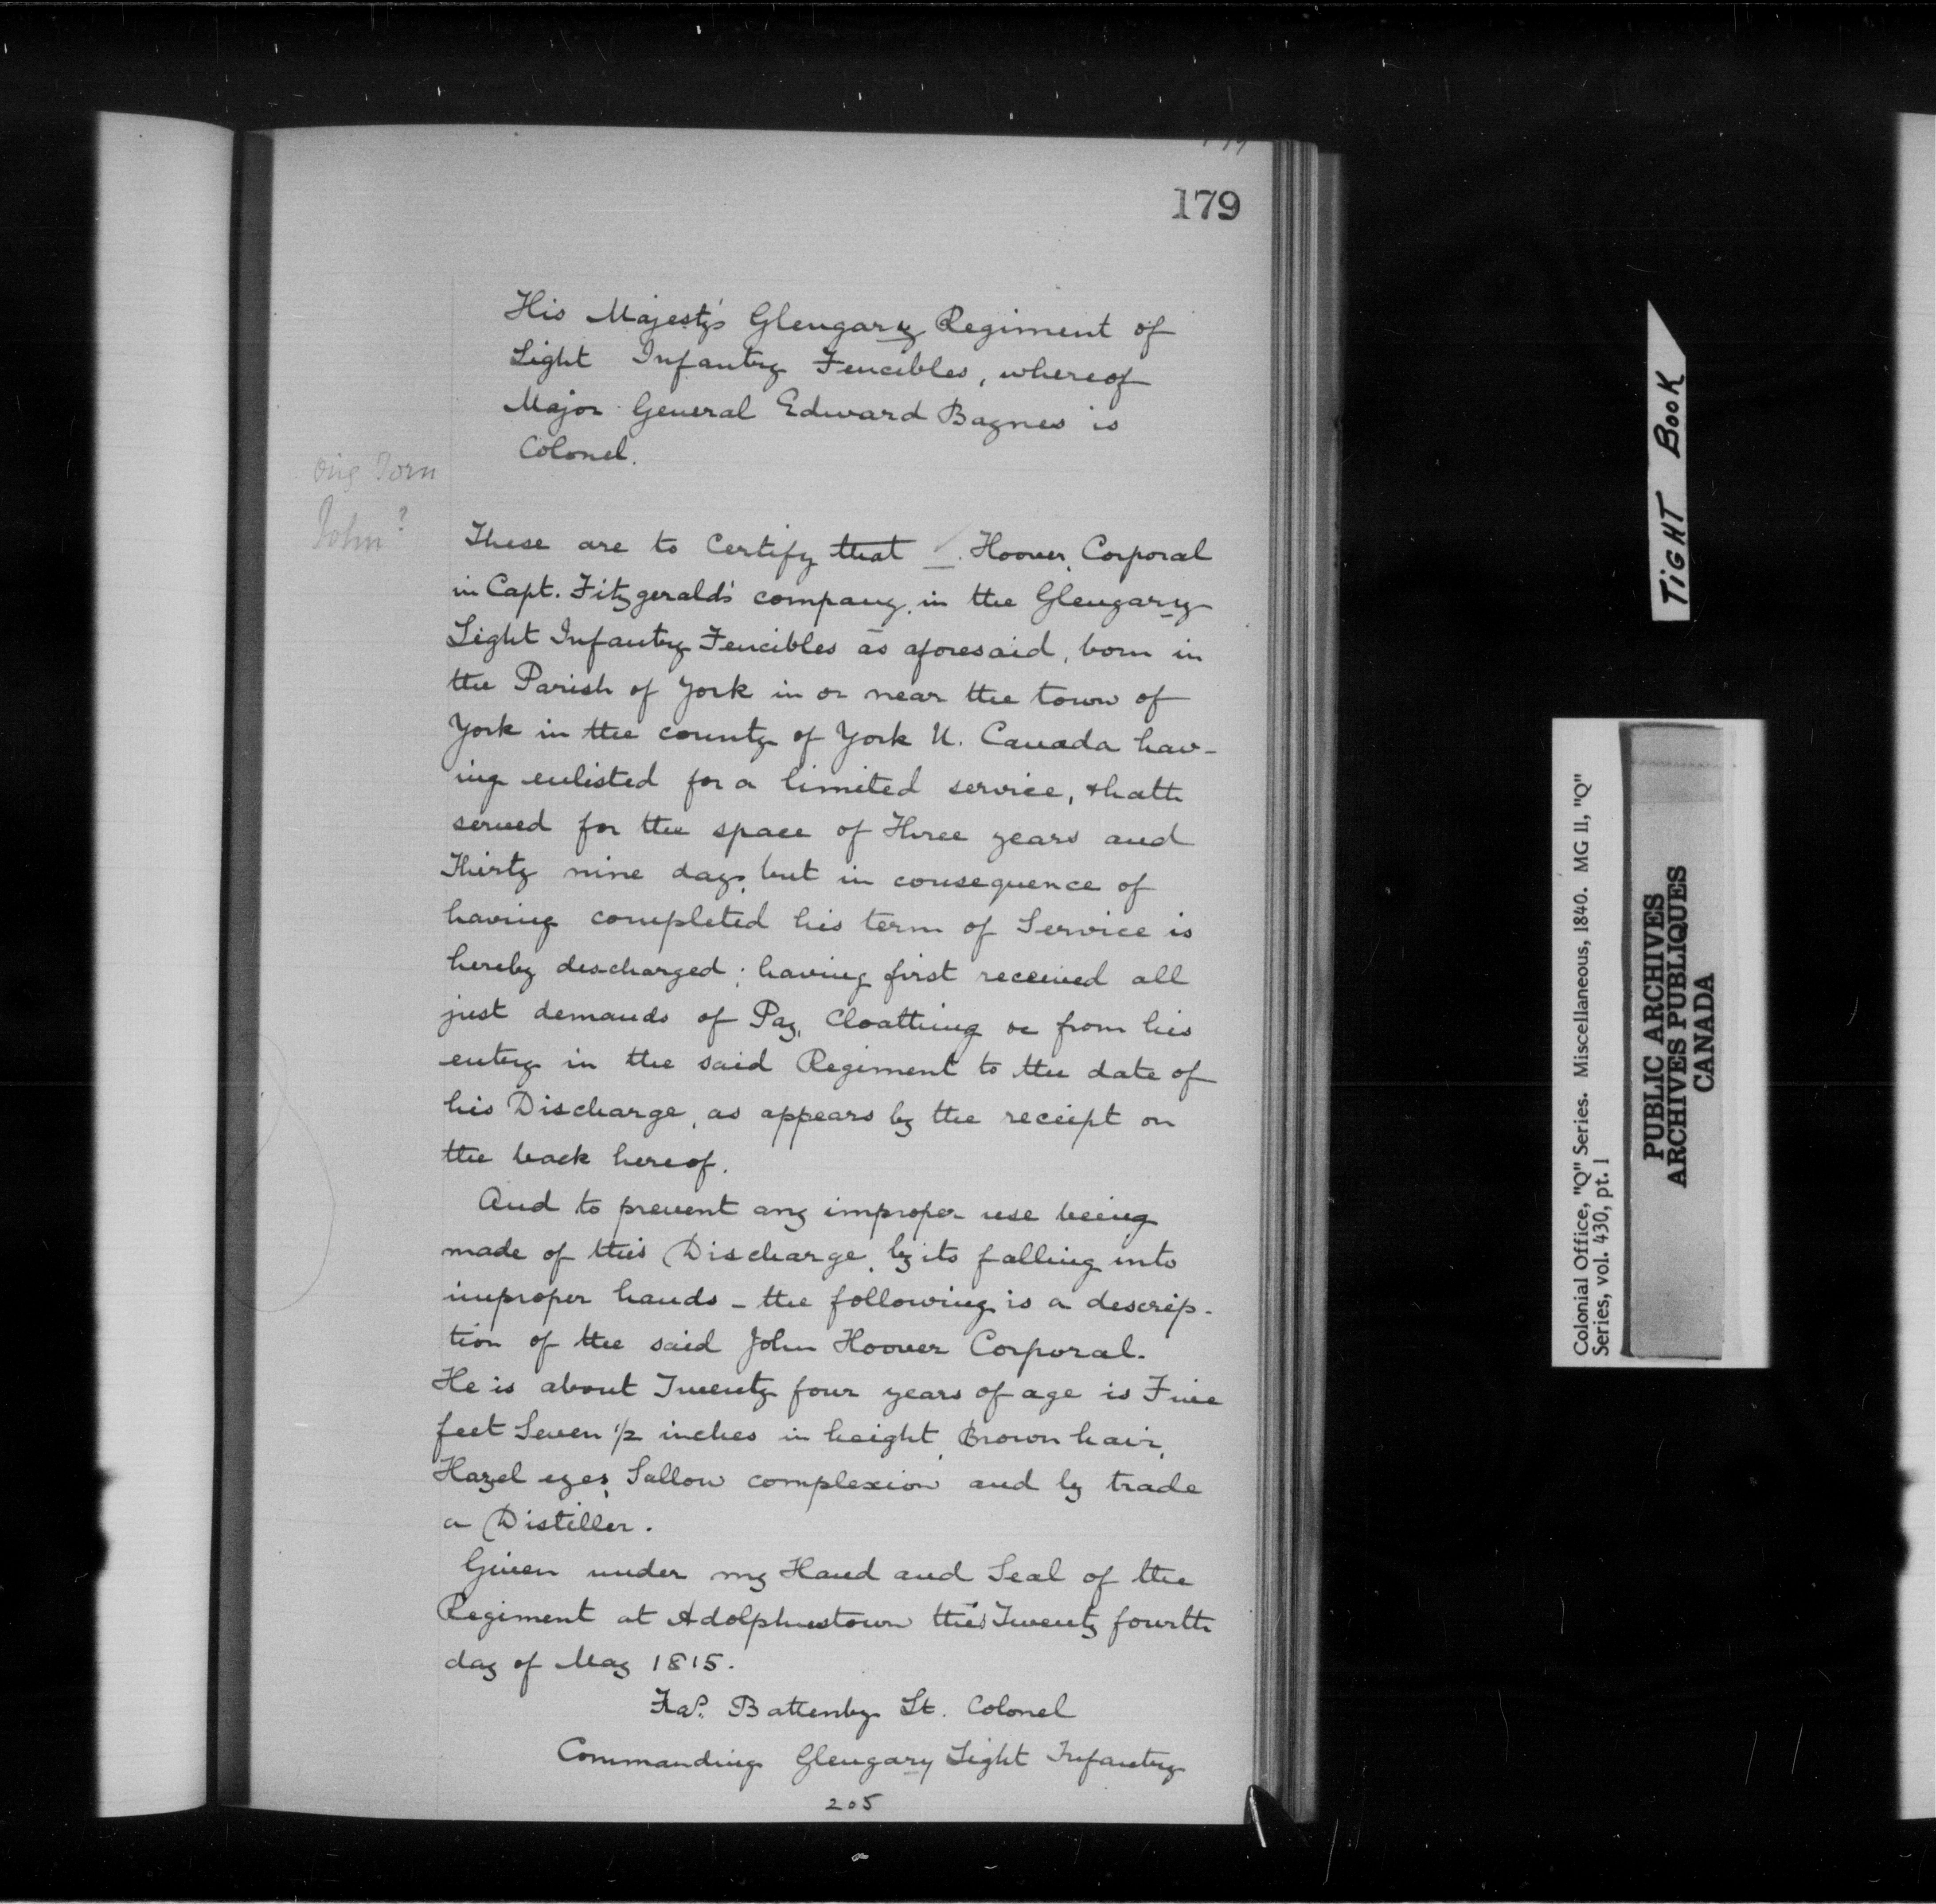 179
His Majesty's Glengary Regiment of
Light Infantry Fencibles, whereof
Major General Edward Baynes is
Colonel.
Orig Torn
John?
These are to Certify that _. Hoover, Corporal
in Capt. Fitzgerald's company, in the Glengary
Light Infantry Fencibles as aforesaid, born in
the Parish of York in or near the town of
York in the county of York U. Canada hav-
ing enlisted for a limited service, & hath
served for the space of Three years and
Thirty nine days, but in consequence of
having completed his term of Service is
hereby discharged; having first received all
just demands of Pay, Cloathing &c from his
entry in the said Regiment to the date of
his Discharge, as appears by the receipt on
the back hereof.
And to prevent any improper use being
made of this Discharge, by its falling into
improper hands - the following is a descrip-
tion of the said John Hoover Corporal.
He is about Twenty four years of age is Five
feet Seven 1/2 inches in height, Brown hair,
Hazel eyes, Sallow complexion and by trade
a Distiller.
Given under my Hand and Seal of the
Regiment at Adolphustown this Twenty fourth
day of May 1815.
Fras. Battenby Lt. Colonel
Commanding Glengary Light Infantry
205
TIGHT BOOK
Colonial Office, "Q" Series. Miscellaneous, 1840. MG 11, "Q"
Series, vol. 430, pt. 1
PUBLIC ARCHIVES
ARCHIVES PUBLIQUES
CANADA